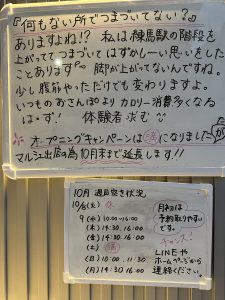 『何もない所でつまづいてない?』
ありますよね!? 私は練馬駅の階段を
上がっててつまづいてはずかしーい思いをした
ことあります 脚が上がってないんですね。
少し腹筋やっただけでも変わりますよ。
いつものおさんぽよりカロリー消費多くなる
はず! 体験者求む
オープニングキャンペーンは満になりましたが
マルシェ出店の為10月末まで延長します!!
10月 週目空き状況
10/8(火) 休
9(水) 10:00~16:00
(木) 14:30 16:00
(金) 14:30 16:00
(土) 満
(日) 10:00 11:30
(月) 14:30 16:00
月初は
予約取りやすい
です。
チャンス!
LINEや
ホームページから
連絡ください。